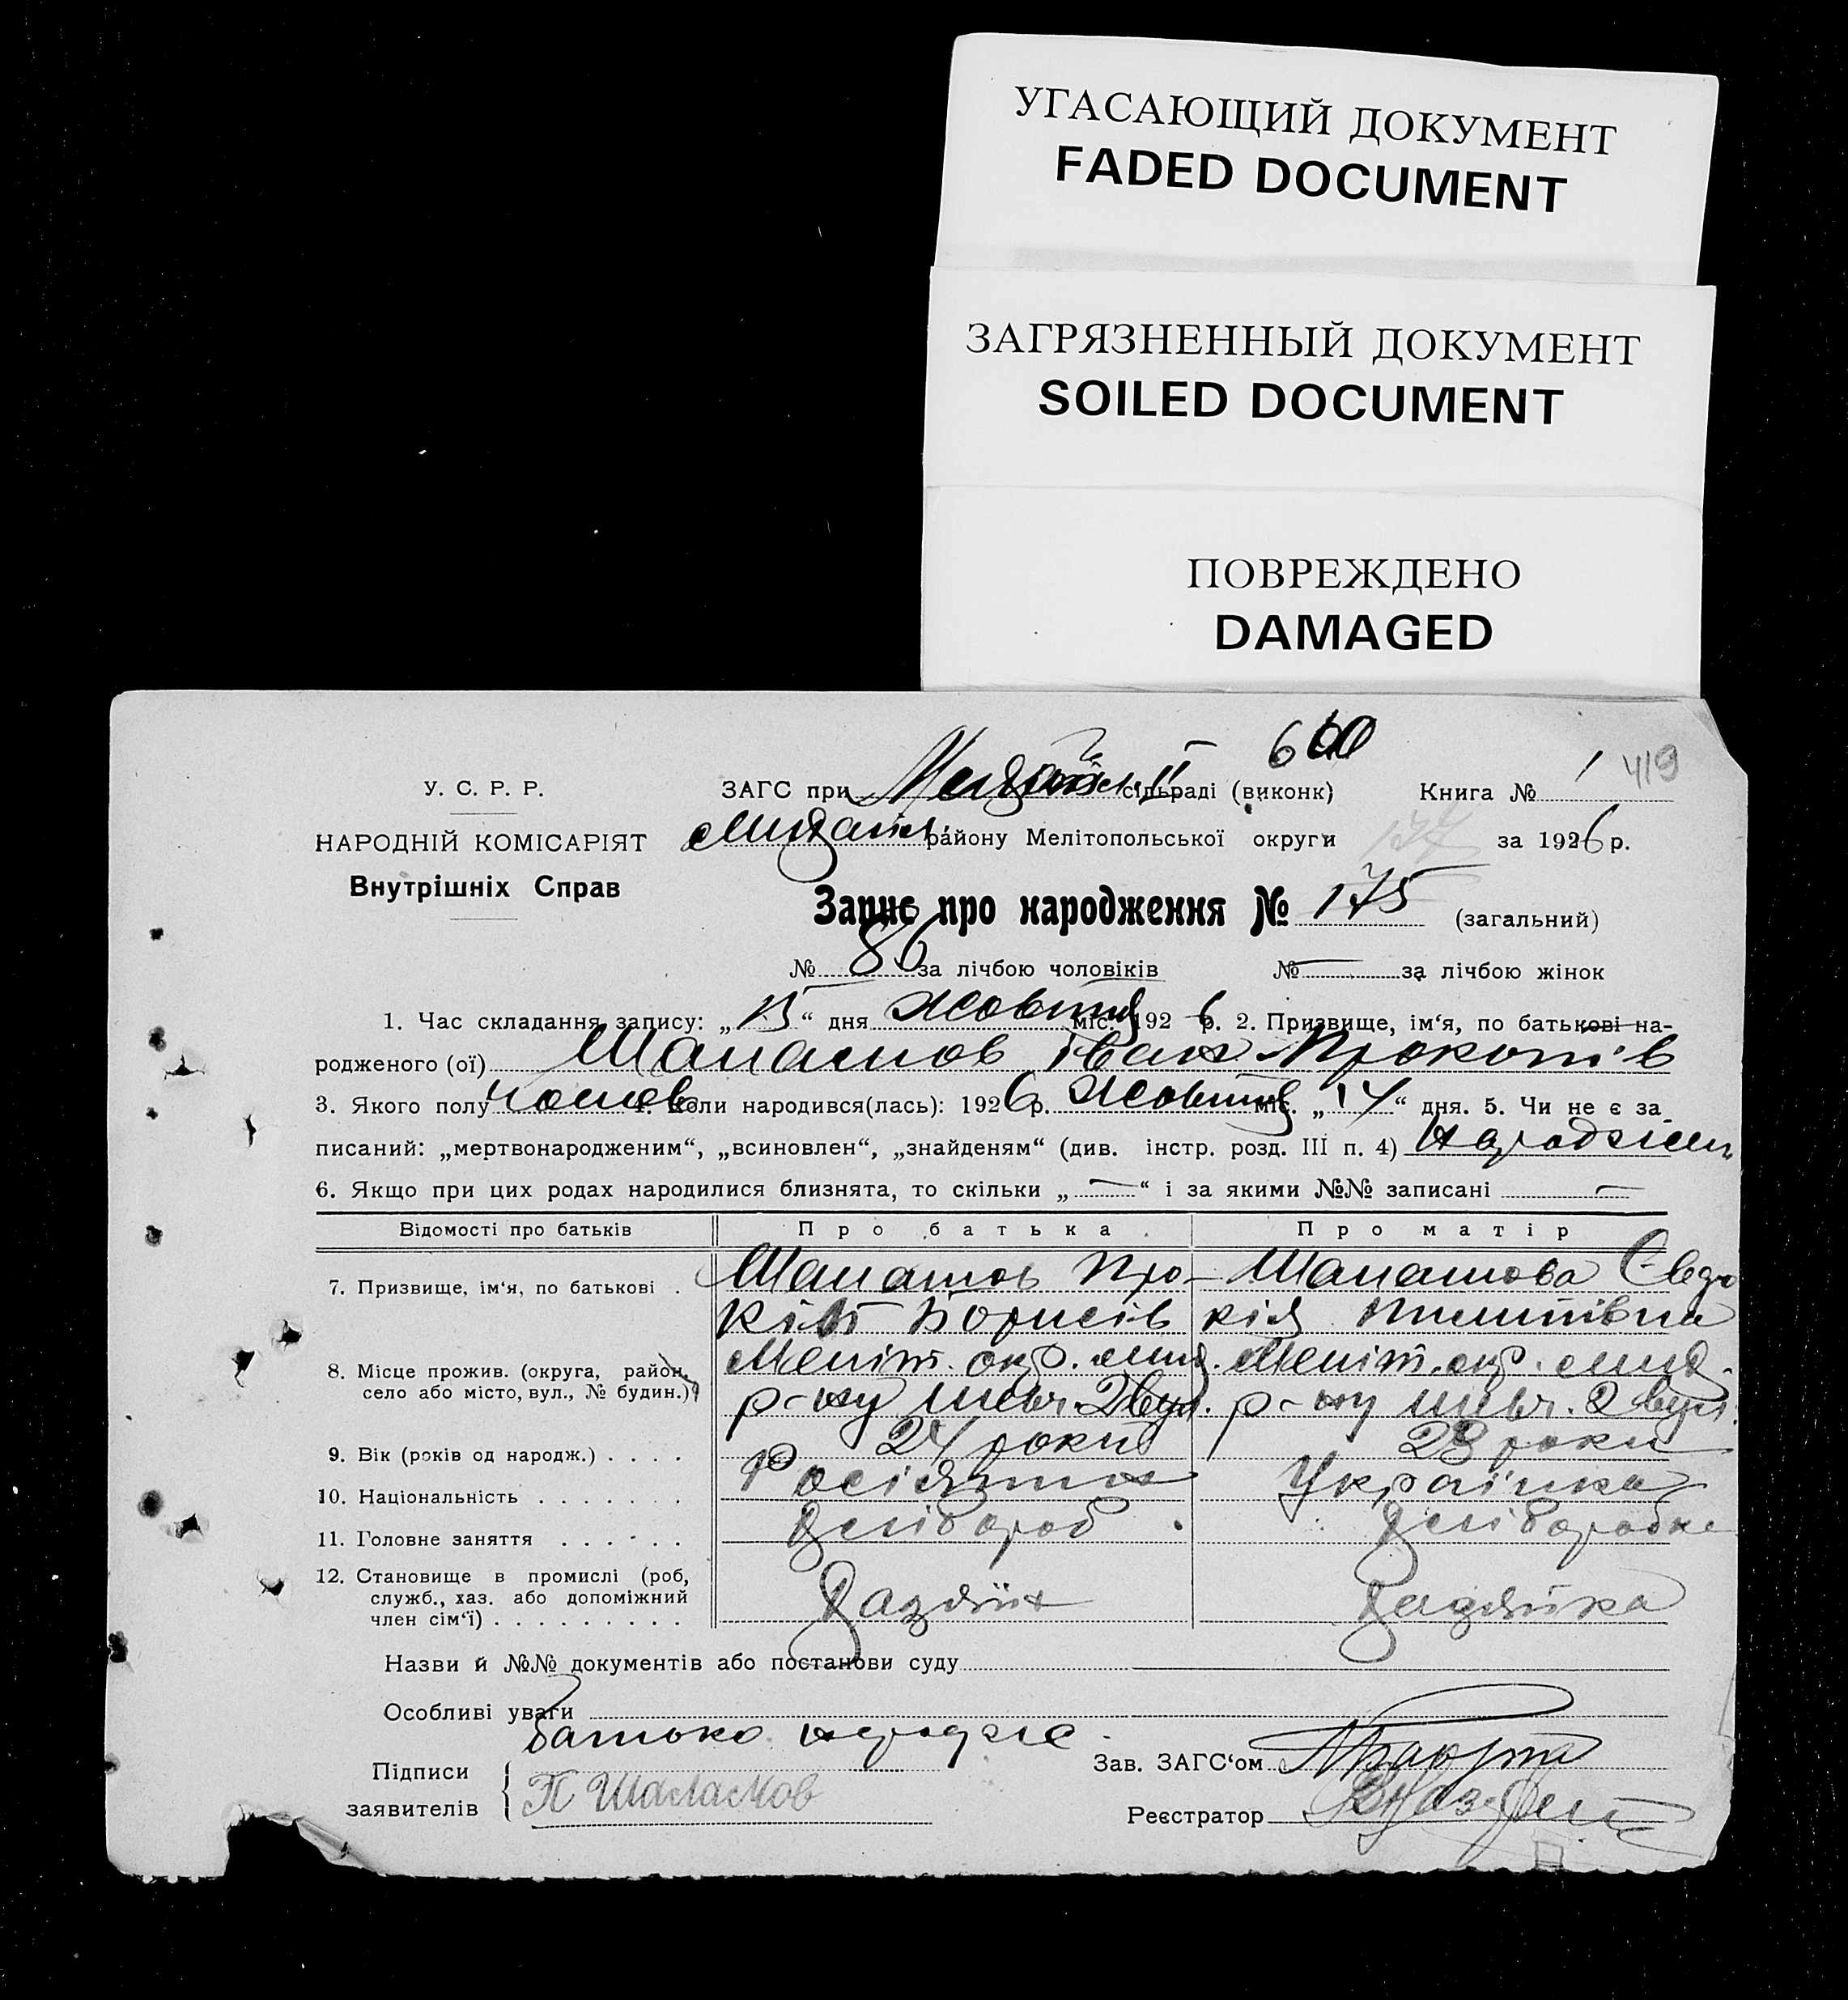 УГАСАЮЩИЙ ДОКУМЕНТ
FADED DOCUMENT
ЗАГРЯЗНЕННЫЙ ДОКУМЕНТ
SOILED DOCUMENT
ПОВРЕЖДЕНО
DAMAGED
419
У. С. Р. Р. ЗАГС при сільраді (виконк) Книга № 1
НАРОДНІЙ КОМІСАРІЯТ району Мелітопольської округи за 1926 р.
Внутрішніх Справ
Запис про народження № 175 (загальний)
№ 86 за лічбою чоловіків № — за лічбою жінок
1. Час складання запису: „15“ дня Жовтня міс. 1926 р. 2. Призвище, ім‘я, по батькові на-
родженого (ої) Шаламов Іван Прокопів
3. Якого полу чолов 4. Коли народився(лась): 1926 р. Жовтня міс. „14“ дня. 5. Чи не є за
писаний: „мертвонародженим“, „всиновлен“, „знайденям“ (див. інстр. розд. III п. 4)
6. Якщо при цих родах народилися близнята, то скільки „—“ і за якими №№ записані —
Відомості про батьків Про батька Про матір
7. Призвище, ім‘я, по батькові . Шаламов Про- Шаламова Євдо
кіп Борисів кія Пилипівна
8. Місце прожив. (округа, район, Меліт. окр. Меліт. окр.
село або місто, вул., № будин.) р-ну 2 вул. р-ну 2 вул.
9. Вік (років од народж.) . . . . 24 роки 23 роки
10. Національність . . . . . . . Росіянин Українка
11. Головне заняття . . . . . . Хлібороб Хліборобка
12. Становище в промислі (роб, служб., хаз. або допоміжний член сім‘ї) . . . . . . . . . Хазяїн Хазяйка
Назви й №№ документів або постанови суду
Особливі уваги
Батько
Підписи заявителів П Шаламов
Зав. ЗАГС‘ом
Реєстратор